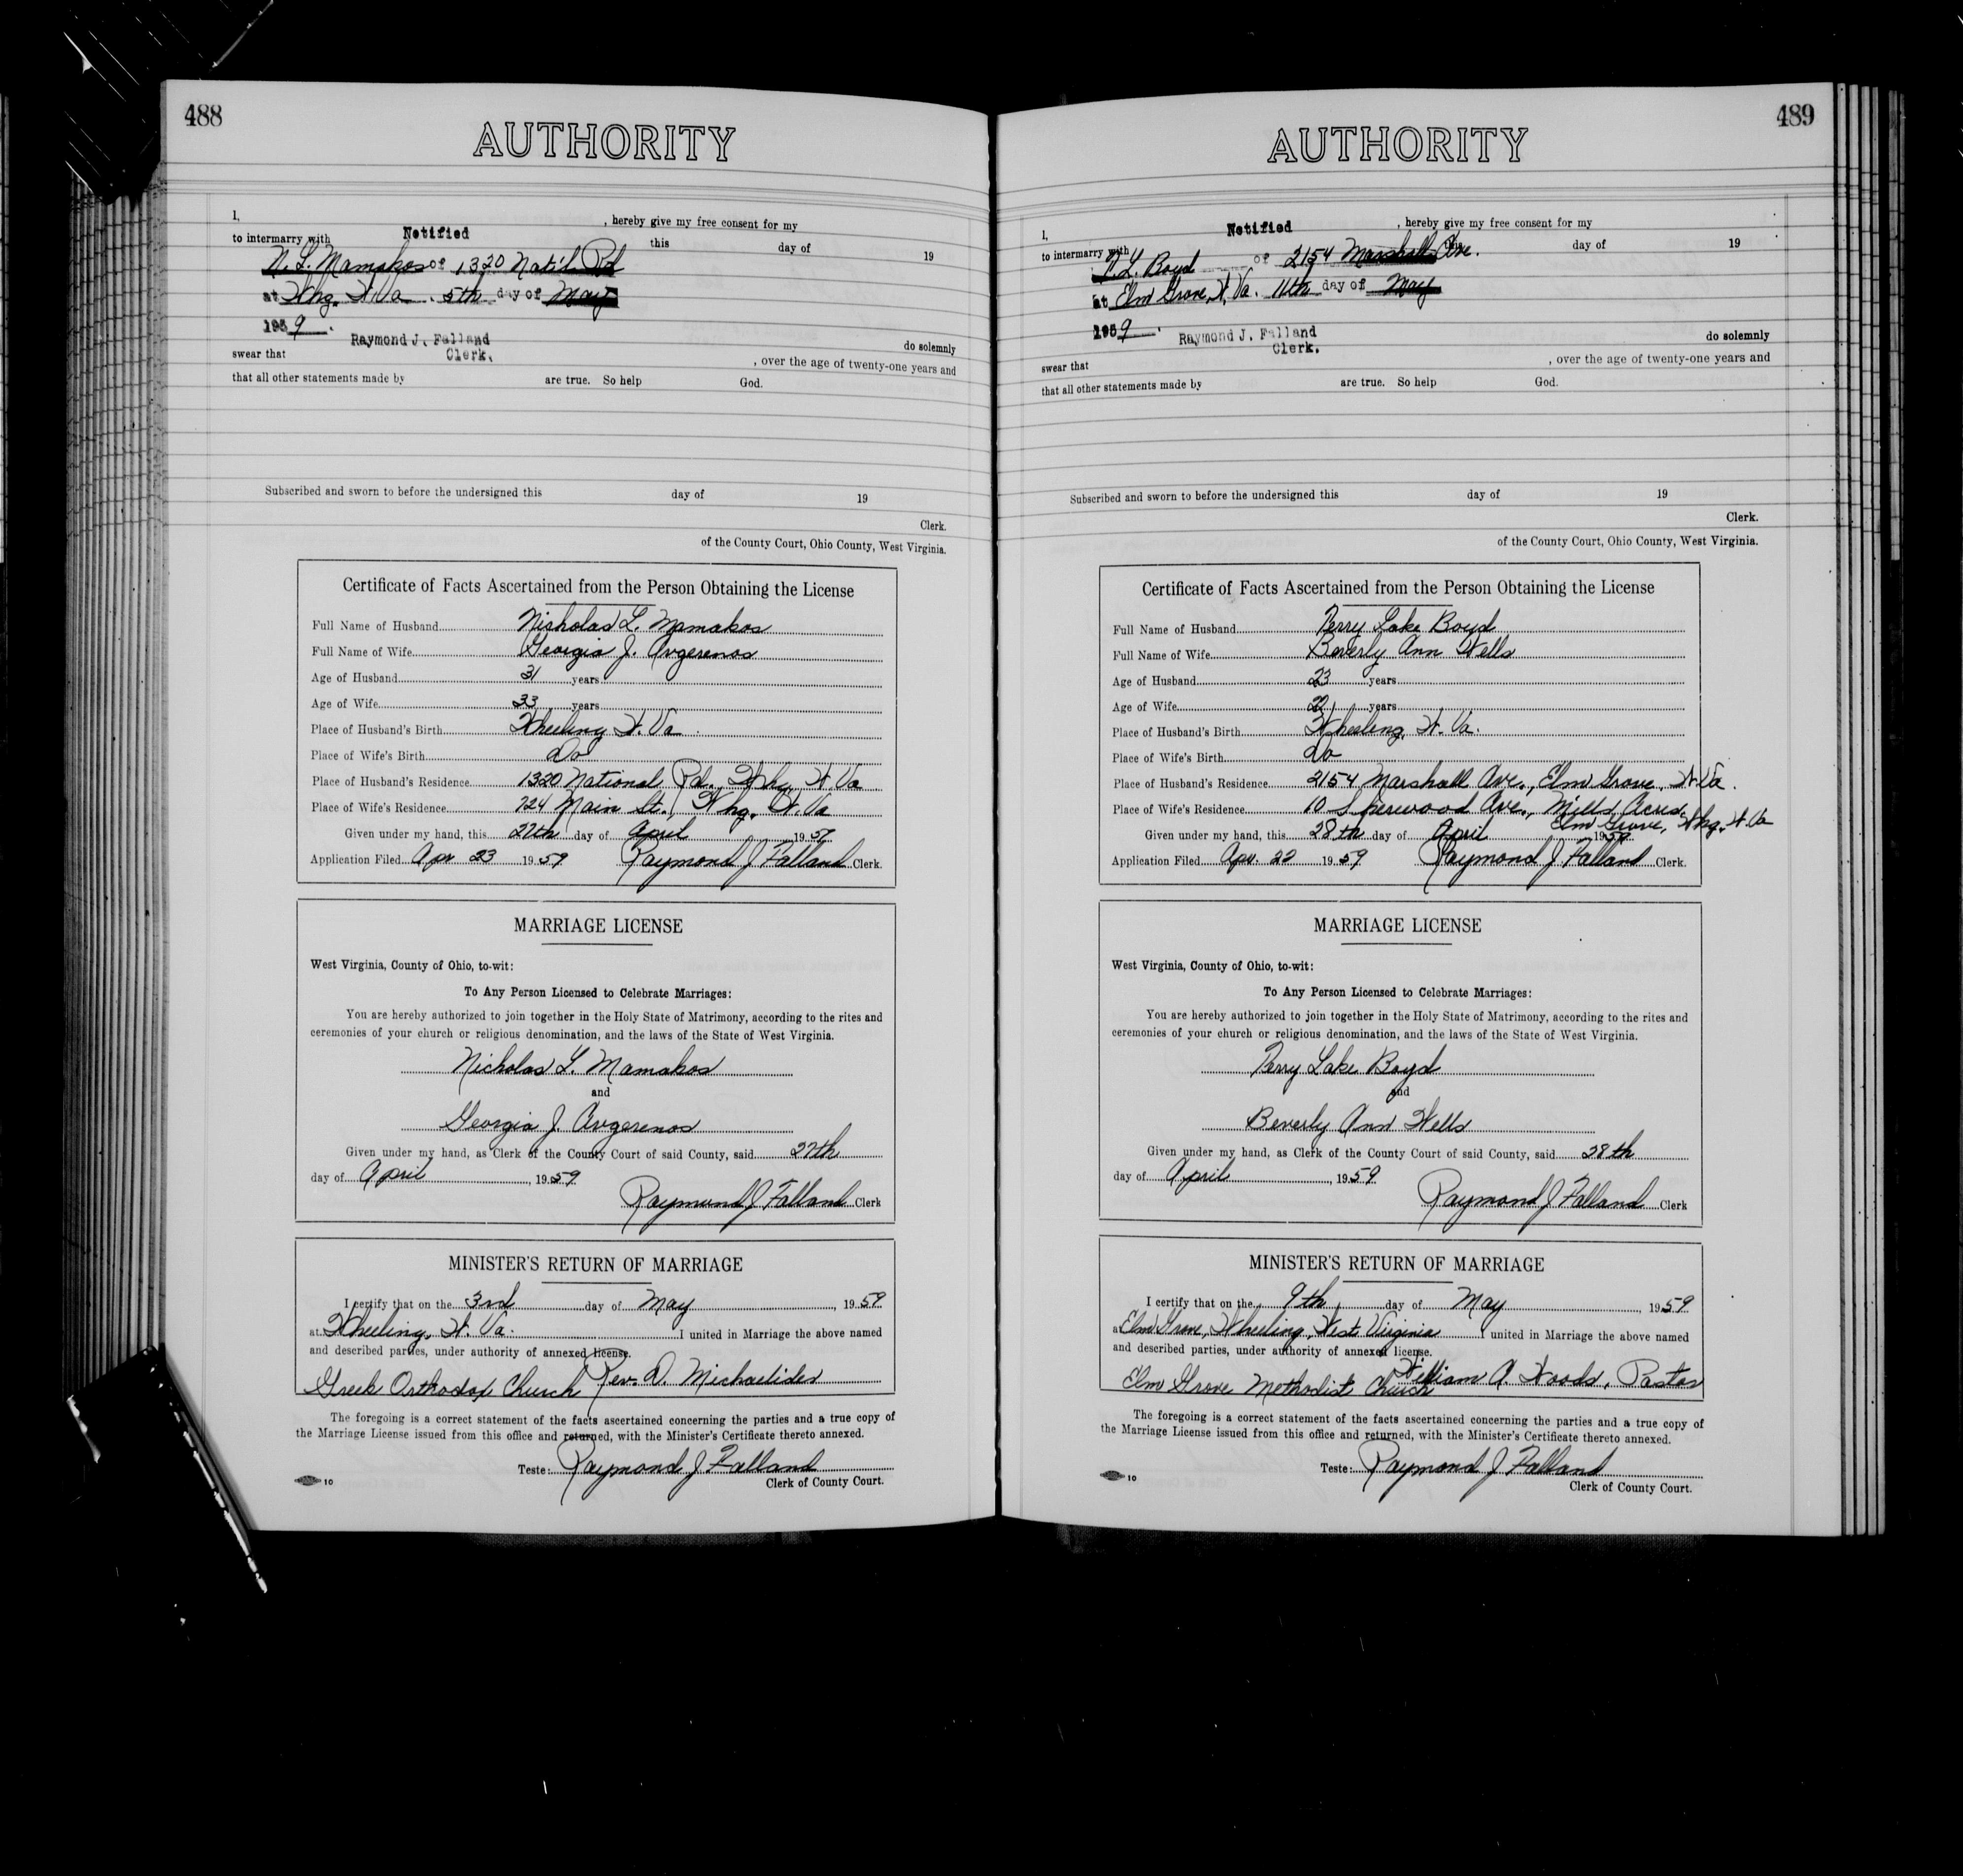 488
AUTHORITY
I, , hereby give my free consent for my
to intermarry with this day of 19
Notified
N. L. Mamakos of 1320 Nat'l. Rd
at Whg. W. Va. 5th day of May
1959.
Raymond J. Falland
Clerk.
do solemnly
swear that , over the age of twenty-one years and
that all other statements made by are true. So help God.
Subscribed and sworn to before the undersigned this day of 19
Clerk.
of the County Court, Ohio County, West Virginia.
Certificate of Facts Ascertained from the Person Obtaining the License
Full Name of Husband Nicholas L. Mamakos
Full Name of Wife Georgia J. Avgerenos
Age of Husband 31 years
Age of Wife 33 years
Place of Husband's Birth Wheeling W. Va.
Place of Wife's Birth Do
Place of Husband's Residence 1320 National Rd., Whg. W. Va.
Place of Wife's Residence 724 Main St., Whg. W. Va
Given under my hand, this 27th day of April 1959
Application Filed Apr 23 1959 Raymond J Falland Clerk.
MARRIAGE LICENSE
West Virginia, County of Ohio, to-wit:
To Any Person Licensed to Celebrate Marriages:
You are hereby authorized to join together in the Holy State of Matrimony, according to the rites and
ceremonies of your church or religious denomination, and the laws of the State of West Virginia.
Nicholas L. Mamakos
and
Georgia J. Avgerenos
Given under my hand, as Clerk of the County Court of said County, said 27th
day of April, 1959
Raymond J Falland Clerk
MINISTER'S RETURN OF MARRIAGE
I certify that on the 3rd day of May, 1959
at Wheeling, W. Va. I united in Marriage the above named
and described parties, under authority of annexed license.
Greek Orthodox Church Rev. D. Michaelides
The foregoing is a correct statement of the facts ascertained concerning the parties and a true copy of
the Marriage License issued from this office and returned, with the Minister's Certificate thereto annexed.
Teste: Raymond J Falland
Clerk of County Court.
10
489
AUTHORITY
I, , hereby give my free consent for my
to intermarry with this day of 19
Notified
P. L. Boyd of 2154 Marshall Ave.
at Elm Grove, W. Va. 11th day of May
1959.
Raymond J. Falland
Clerk.
do solemnly
swear that , over the age of twenty-one years and
that all other statements made by are true. So help God.
Subscribed and sworn to before the undersigned this day of 19
Clerk.
of the County Court, Ohio County, West Virginia.
Certificate of Facts Ascertained from the Person Obtaining the License
Full Name of Husband Perry Lake Boyd
Full Name of Wife Beverly Ann Wells
Age of Husband 23 years
Age of Wife years
Place of Husband's Birth Wheeling, W. Va.
Place of Wife's Birth Do
Place of Husband's Residence 2154 Marshall Ave., Elm Grove, W. Va.
Place of Wife's Residence 10 Sherwood Ave., Mills Acres,
Elm Grove, Whg. W. Va
Given under my hand, this 28th day of April 1959
Application Filed Apr. 22 1959 Raymond J Falland Clerk.
MARRIAGE LICENSE
West Virginia, County of Ohio, to-wit:
To Any Person Licensed to Celebrate Marriages:
You are hereby authorized to join together in the Holy State of Matrimony, according to the rites and
ceremonies of your church or religious denomination, and the laws of the State of West Virginia.
Perry Lake Boyd
and
Beverly Ann Wells
Given under my hand, as Clerk of the County Court of said County, said 28th
day of April, 1959
Raymond J Falland Clerk
MINISTER'S RETURN OF MARRIAGE
I certify that on the 9th day of May, 1959
at Elm Grove, Wheeling, West Virginia I united in Marriage the above named
and described parties, under authority of annexed license.
William A. Woods, Pastor
Elm Grove Methodist Church
The foregoing is a correct statement of the facts ascertained concerning the parties and a true copy of
the Marriage License issued from this office and returned, with the Minister's Certificate thereto annexed.
Teste: Raymond J Falland
Clerk of County Court.
10